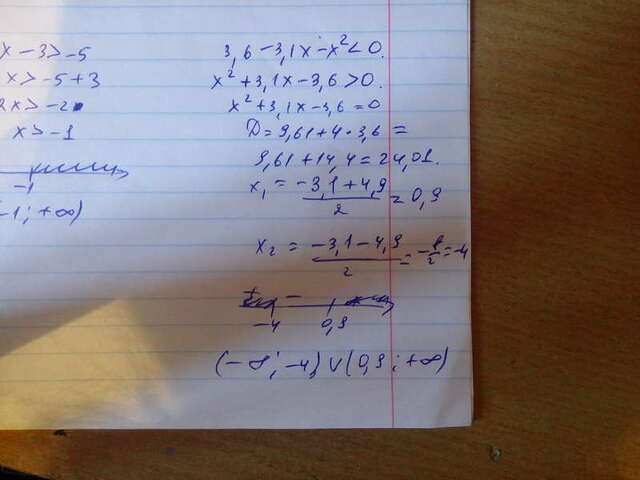 x - 3 > -5
x > -5 + 3
x > -2
x > -1
-1
-1; +∞)
3,6 - 3,1x - x² < 0.
x² + 3,1x - 3,6 > 0.
x² + 3,1x - 3,6 = 0
D = 9,61 + 4 · 3,6 =
9,61 + 14,4 = 24,01.
x₁ = (-3,1 + 4,9)/2 = 0,9
x₂ = (-3,1 - 4,9)/2 = -8/2 = -4
-4 0,8
(-∞; -4) ∪ (0,8; +∞)